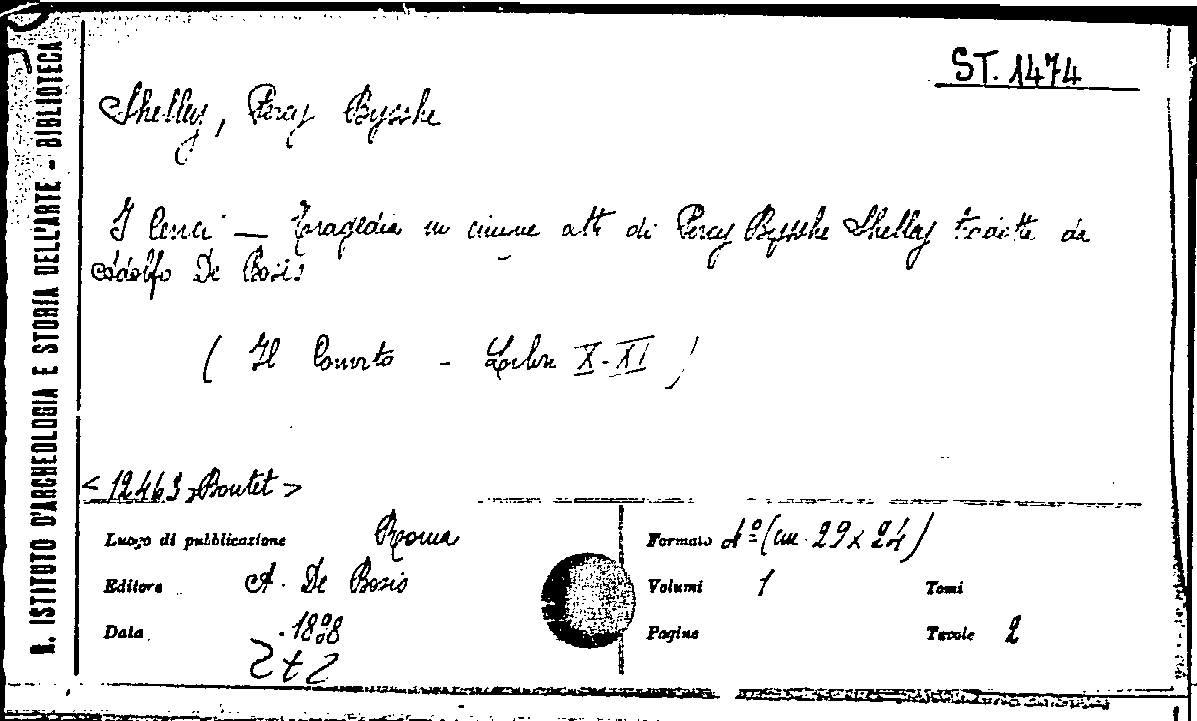 R. ISTITUTO D'ARCHEOLOGIA E STORIA DELL'ARTE - BIBLIOTECA
ST. 1474
Shelley, Percy Bysshe
I Cenci — Tragedia in cinque atti di Percy Bysshe Shelley tradotta da
Adolfo De Bosis
( Il Convito - Libri X-XI )
< 12463, Boutet >
Luogo di pubblicazione Roma
Formato 4º (cm. 29 x 24)
Editore A. De Bosis
Volumi 1 Tomi
Data 1898
Pagine Tavole 2